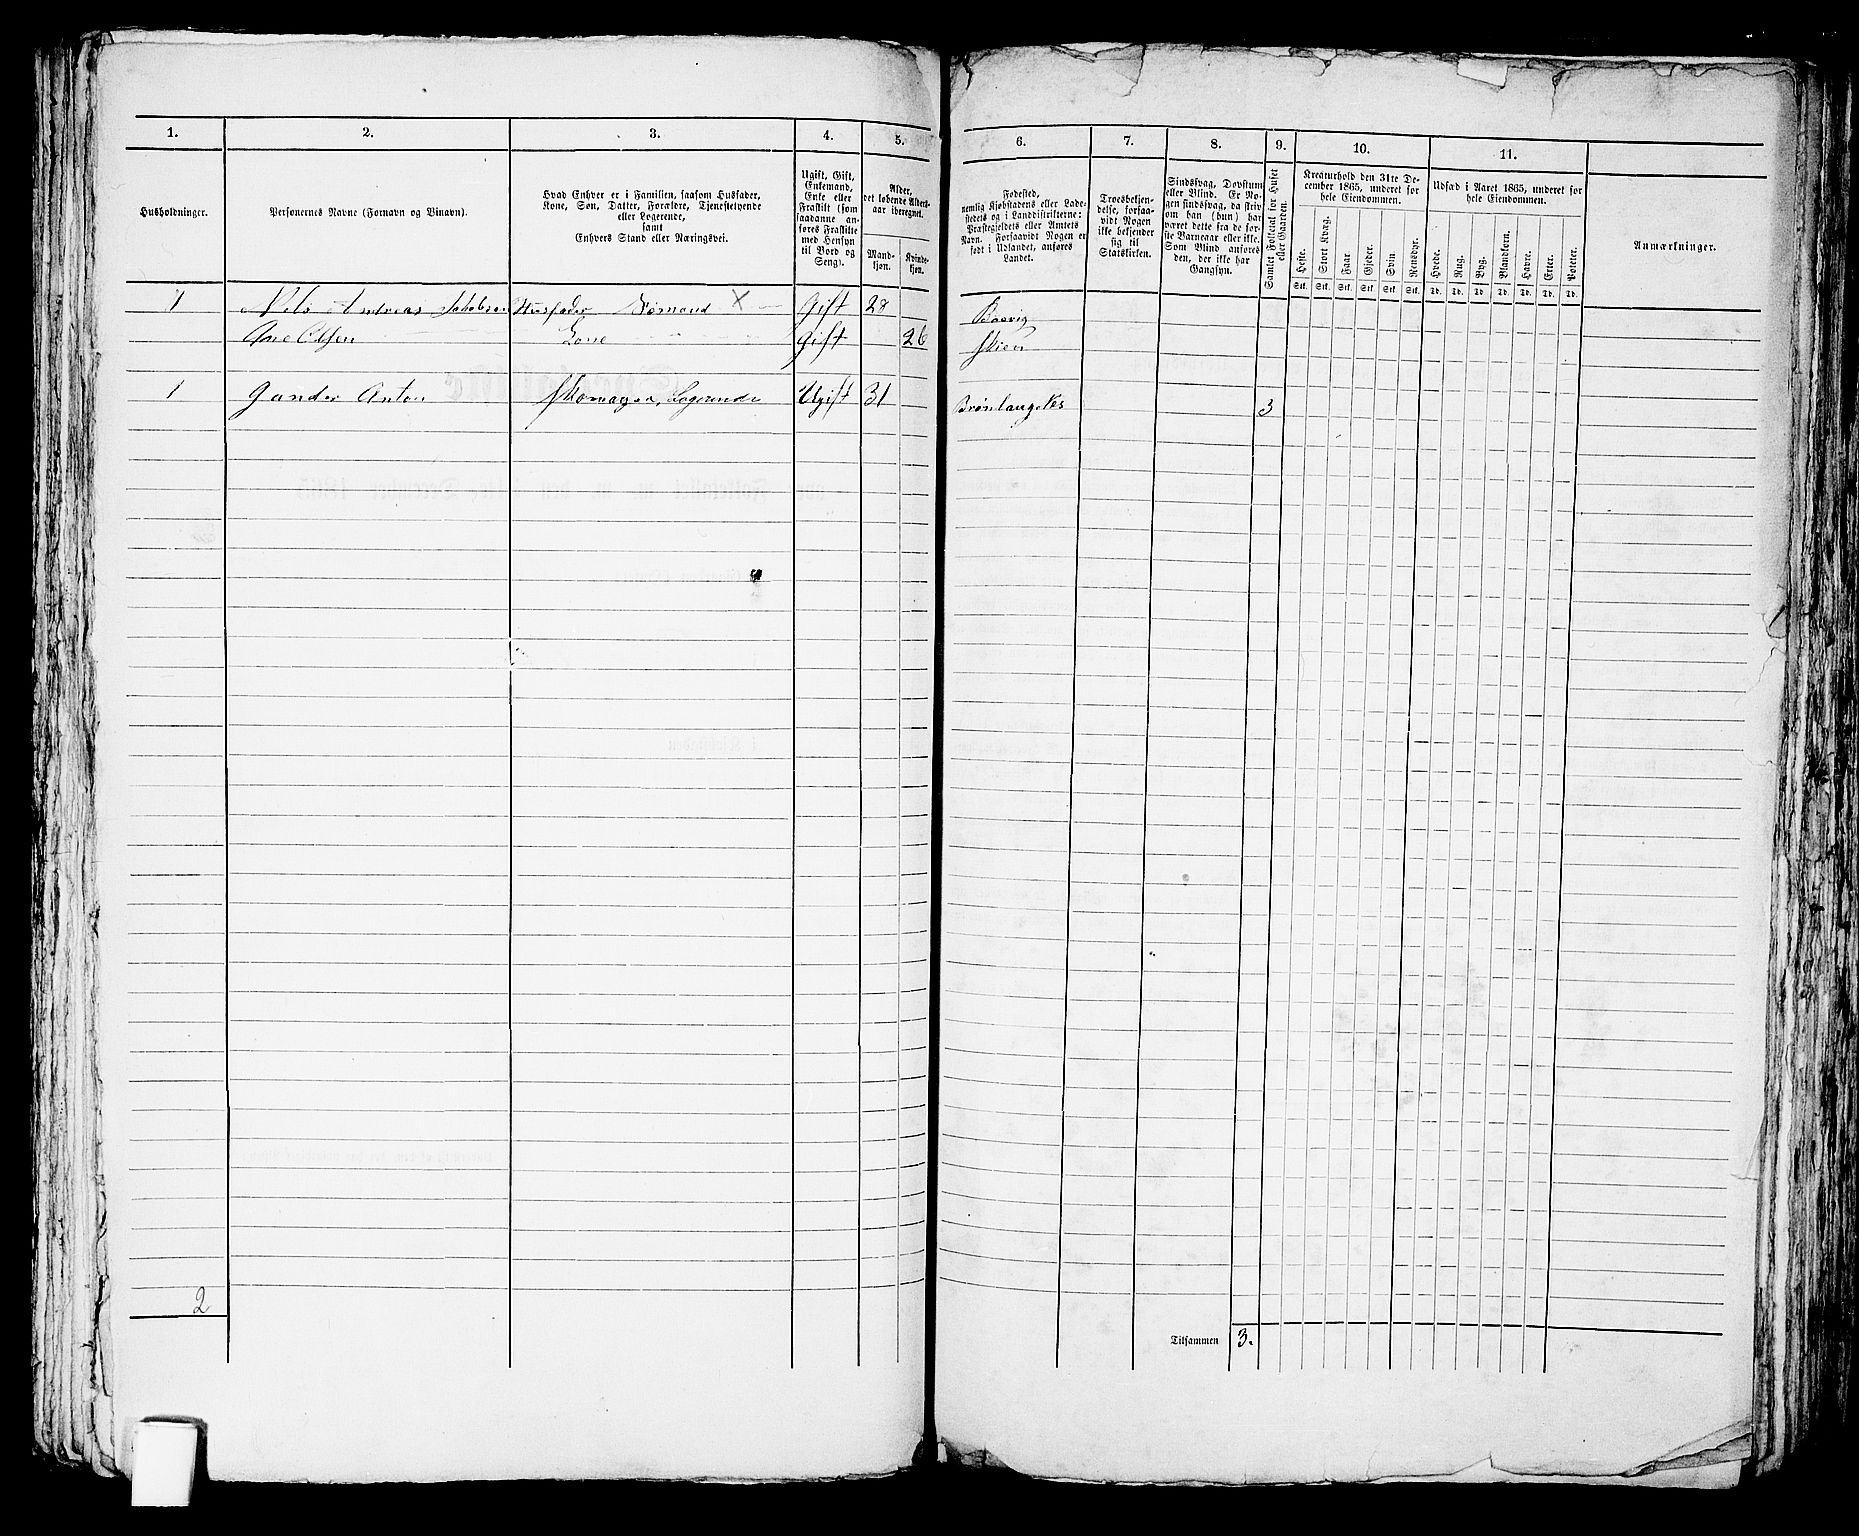 1. 2. 3. 4. 5. 6. 7. 8. 9. 10. 11.
Husholdninger.
Personernes Navne (Fornavn og Binavn).
Hvad Enhver er i Familien, saasom Husfader,
Kone, Søn, Datter, Forældre, Tjenestetyende
eller Logerende,
samt
Enhvers Stand eller Næringsvei.
Ugift, Gift,
Enkemand,
Enke eller
Fraskilt (som
saadanne an-
føres Fraskilte
med Hensyn
til Bord og
Seng).
Alder,
det løbende Alders-
aar iberegnet.
Mand-
kjøn.
Kvinde-
kjøn.
Fødested,
nemlig Kjøbstadens eller Lade-
stedets og i Landdistrikterne:
Præstegjeldets eller Amtets
Navn. Forsaavidt Nogen er
født i Udlandet, anføres
Landet.
Troesbekjen-
delse, forsaa-
vidt Nogen
ikke bekjender
sig til
Statskirken.
Sindssvag, Døvstum
eller Blind. Er No-
gen sindssvag, da skriv
om han (hun) har
været dette fra de før-
ste Barneaar eller ikke.
Som Blind anføres
den, der ikke har
Gangsyn.
Samlet Folketal for Huset
eller Gaarden.
Kreaturhold den 31te De-
cember 1865, underet for
hele Eiendommen.
Heste. Stort Kvæg. Faar. Gjeder. Svin. Rensdyr.
Stk. Stk. Stk. Stk. Stk. Stk.
Udsæd i Aaret 1865, underet for
hele Eiendommen.
Hvede. Rug. Byg. Blandkorn. Havre. Erter. Poteter.
Td. Td. Td. Td. Td. Td. Td.
Anmærkninger.
1 Nels Andreas Jakobsen Husfader Sømand X Gift 28
Ane Olsen Kone Gift 26 Skien
1 Gander Anton Skomager, Logerende Ugift 31 3
2
Tilsammen 3.